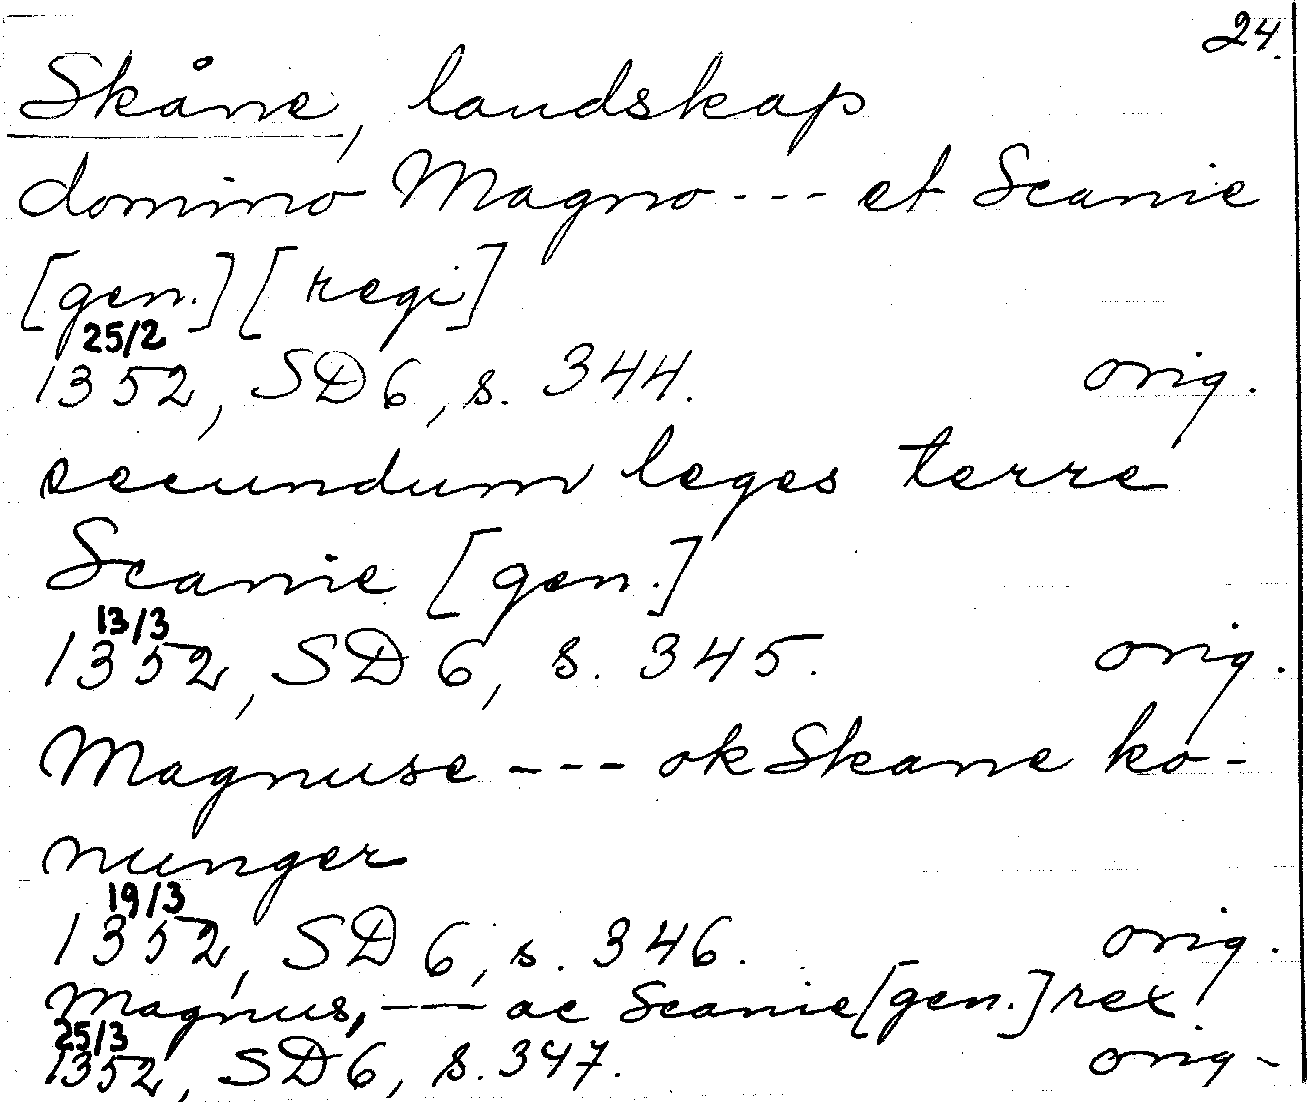 24.
Skåne, landskap
domino Magno --- et Scanie
[gen.] [regi]
25/2
1352, SD 6, s. 344. orig.
secundum leges terre
Scanie [gen.]
13/3
1352, SD 6, s. 345. orig.
Magnuse --- ok Skane ko-
nunger
19/3
1352, SD 6, s. 346. orig.
Magnus, --- ac Scanie [gen.] rex
25/3
1352, SD 6, s. 347. orig-